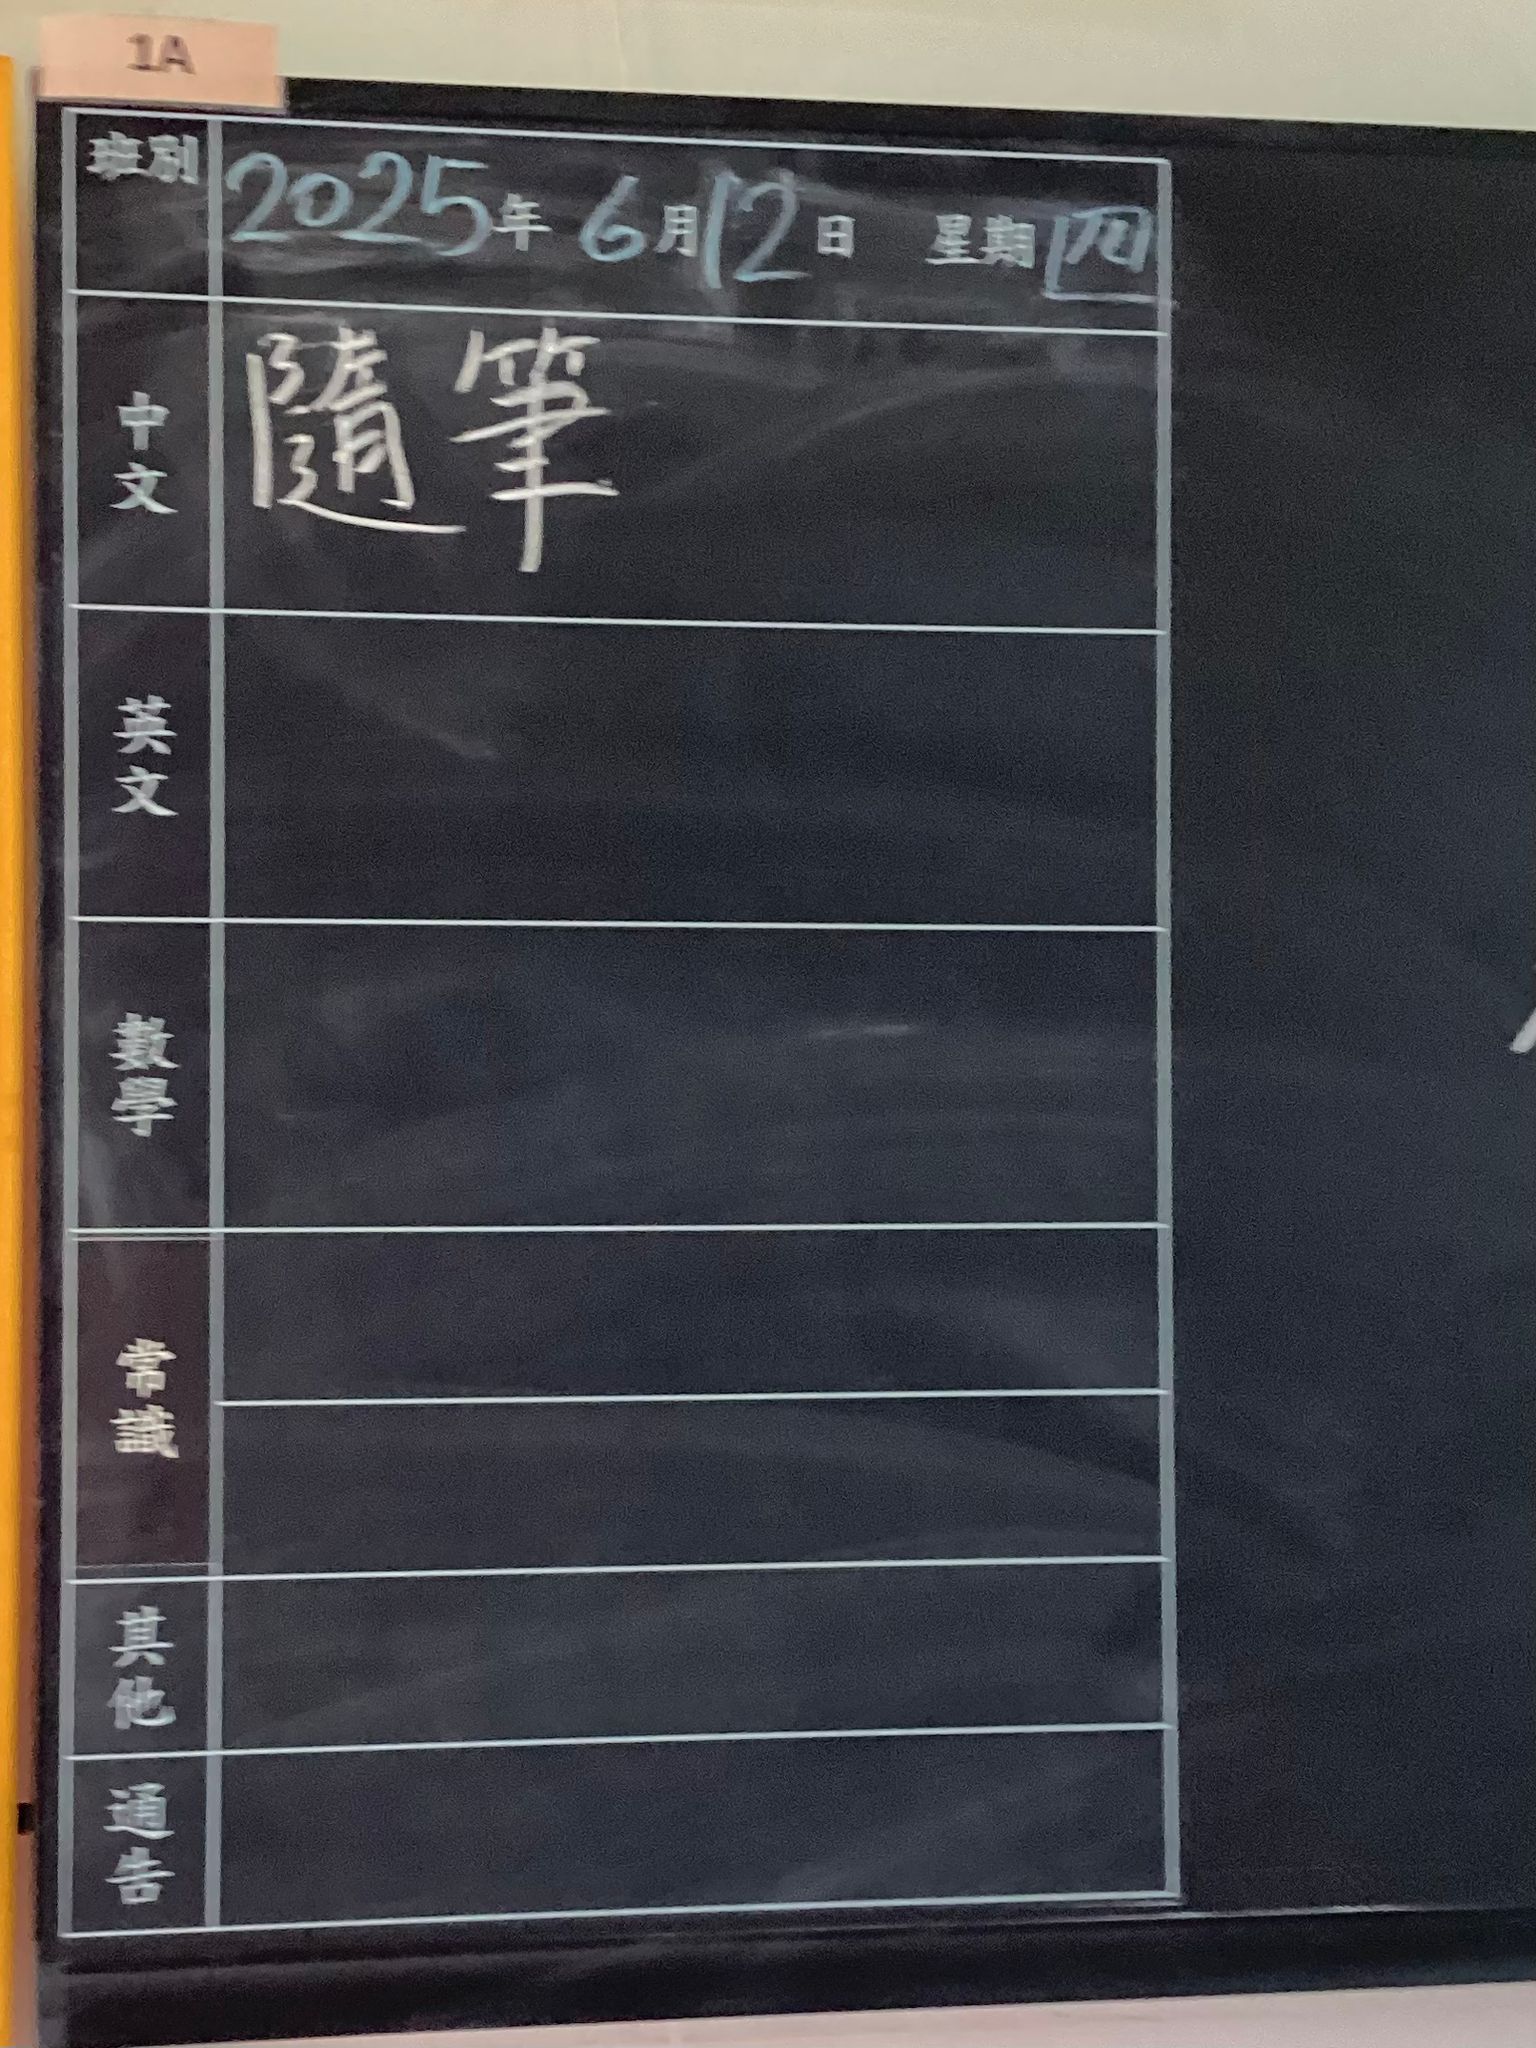 1A
班別 2025年 6月12日 星期四
中文 隨筆
英文
數學
常識
其他
通告